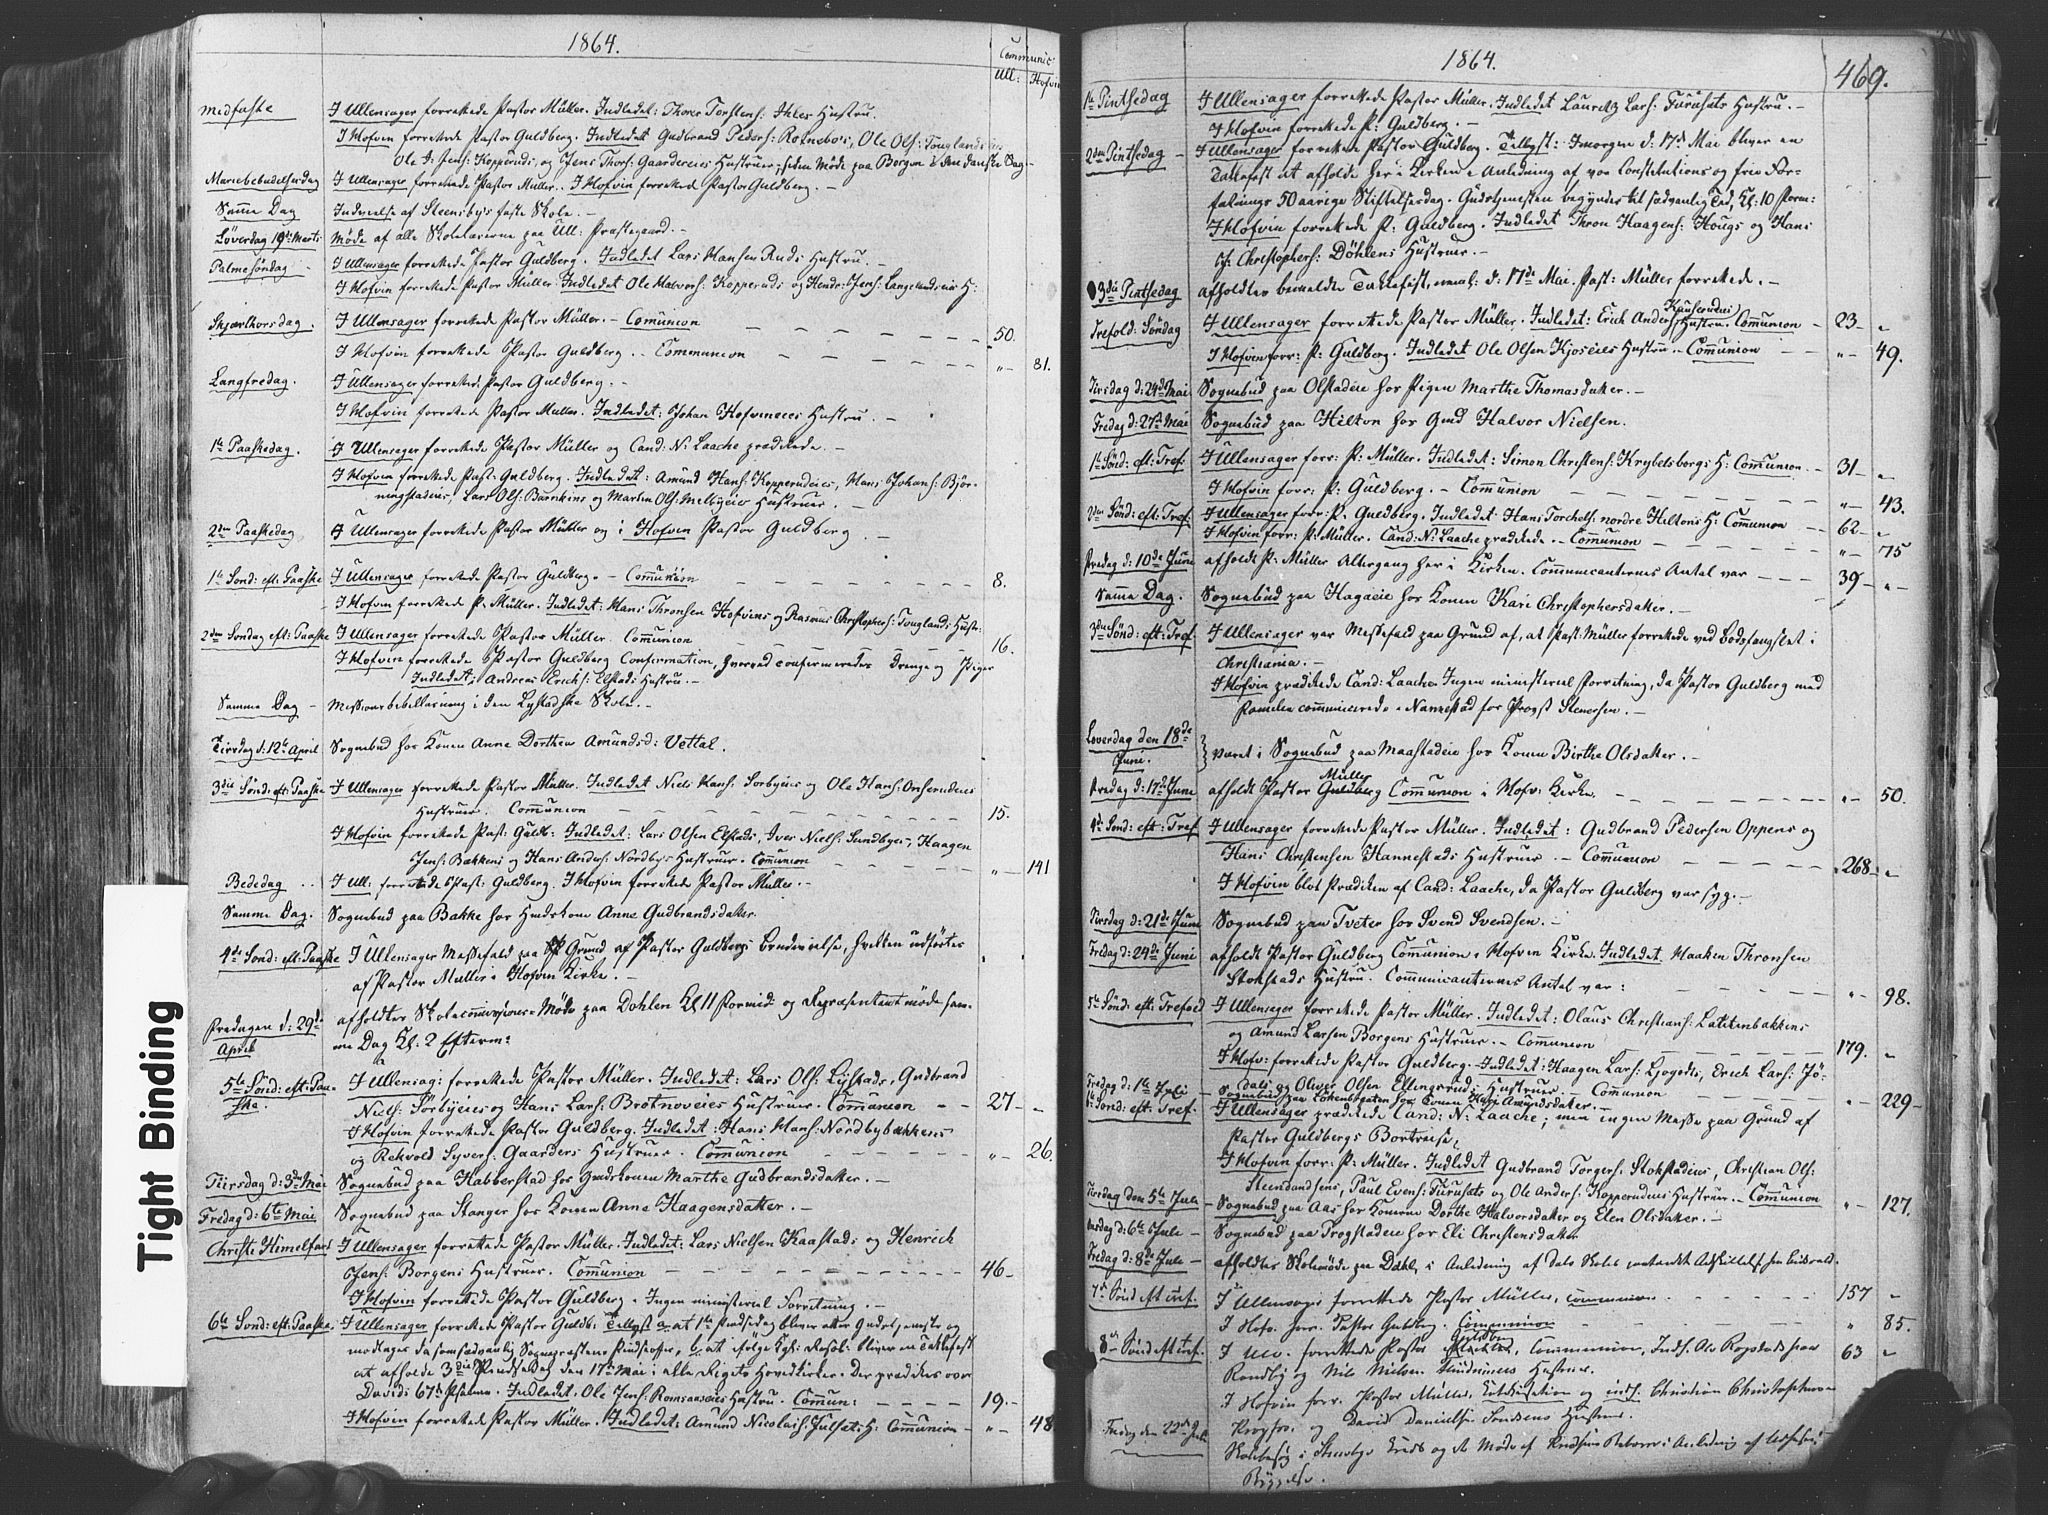 1864.
Communic
Ull: Hofvin
Midfaste
I Ullensager forrettede Pastor Müller. Indledet: Thorer Torstens: Hustru.
I Hofvin forrettede Pastor Guldberg. Indledet Gudbrand Peders: Ole Ols:
Ole Jens: Kopperuds, og Jens Thors: Gaardereies Hustruer;
Mariæbebudelsesdag I Ullensager forrettede Pastor Müller. I Hofvin forrettede Pastor Guldberg. –
Samme Dag Indvielse af Steensbys faste Skole. –
Løverdag 19de Marts Møde af alle Skolelærerne paa Ull: Præstegaard. –
Palmesøndag – I Ullensager forrettede Pastor Guldberg. Indledet Lars Hansen Ruds Hustru. –
I Hofvin forrettede Pastor Müller. Indledet Ole Halvors: Kopperuds og Hendr: Jens: Langelandseies H:
Skjærthorsdag. I Ullensager forrettede Pastor Müller. – Communion 50.
I Hofvin forrettede Pastor Guldberg. – Communion „ – 81.
Langfredag. I Ullensager forrettede Pastor Guldberg. –
I Hofvin forrettede Pastor Müller. Indledet: Johan Hofvineies Hustru. –
1ste Paaskedag. I Ullensager forrettede Pastor Müller og Cand: N: Laache prædikede. –
I Hofvin forrettede Past: Guldberg. Indledet: Amund Hans: Kopperudeies, Hans Johans: Bjør-
ningstadeies, Lars Ols: og Martin Ols: Hustruer. –
2den Paaskedag I Ullensager forrettede Pastor Müller og i Hofvin Pastor Guldberg. –
1ste Sønd: eft: Paaske I Ullensager forrettede Pastor Guldberg. – Communion 8.
I Hofvin forrettede P. Müller. Indledet: Hans Thronsen Hofvins og Rasmus Christophers: Tonglands Hustr:
2den Søndag eft: Paaske I Ullensager forrettede Pastor Müller. Communion 16.
I Hofvin forrettede Pastor Guldberg Confirmation, hvorved confirmeredes Drenge og Piger
Indledet: Andreas Erichs: Elstads Hustru. –
Samme Dag – Missionsbibellæsning i den Lystadske Skole. –
Tirsdag d: 12te April Sognebud hos Konen Anne Dorthea Amundsd: Vettal.
3die Sønd: eft: Paaske I Ullensager forrettede Pastor Müller. Indledet Niels Hans: Sørbyeies og Ole Hans: Onserudeies
Hustruer. Communion 15.
I Hofvin forrettede Past: Guldb: Indledet: Lars Olsen Elstads, Iver Niels: Sundbyei, Haagen
Jens: Bakkens og Hans Anders: Nordbys Hustruer. Communion „ – 141
Bededag .. I Ull: forrettede Past: Guldberg. I Hofvin forrettede Pastor Müller. –
Samme Dag. Sognebud paa Bakke hos Huuskone Anne Gudbrandsdatter.
4de Sønd: eft: Paaske I Ullensager Messefald paa Grund af Pastor Guldbergs, hvilken udførtes
af Pastor Müller i Hofvin Kirke. –
Fredagen d: 29de
April
afholdtes Skolecommissions-Møde paa Dohlen Kl 11 Formid: og Repræsentantmøde sam-
me Dag Kl: 2 Efterm:
5te Sønd: eft: Paa-
ske.
I Ullensag: forrettede Pastor Müller. Indledet: Lars Ols: Lystads, Gudbrand
Niels: Sørbyeies og Hans Lars: Brotnoveies Hustruer. Communion – 27 – „
I Hofvin forrettede Pastor Guldberg. Indledet: Hans Hans: Nordbybakkens
og Rehvold Syvers: Gaarders Hustruer. Communion „ – 26.
Tirsdag d: 3die Mai Sognebud paa Habberstad hos Gmdskonen Marthe Gudbrandsdatter. –
Fredag d: 6te Mai Sognebud paa Stanger hos Konen Anne Haagensdatter. –
Christi Himmelfart I Ullensager forrettede Pastor Müller. Indledet: Lars Nielsen Kaastads og Henrich
Jens: Borgens Hustruer. Communion 46 –
I Hofvin forrettede Pastor Guldberg. Ingen ministeriel Forretning. –
6te Sønd: eft: Paaske. I Ullensager forrettede Pastor Guldb: Tillyst a. at 1ste Pindsedag bliver efter Gudstjeneste og
Messe som sædvanlig Sognepræstens Pindseoffer, b. at ifølge Kgl: Resol: bliver en Takkefest
at afholde 3die Pindsedag den 17de Mai i alle Rigets Hovedkirker. Der prædikes over
Davids 67de Psalme. Indledet: Ole Jens: Romsaaseies Hustru. Commun: 19. –
I Hofvin forrettede Pastor Müller. Indledet: Amund Nicolais: Julsets H: Communion – „ – 48
Tight Binding
1864.
469.
1ste Pintsedag I Ullensager forrettede Pastor Müller. Indledet Lauritz Lars: Furusets Hustru. –
I Hofvin forrettede P. Guldberg. –
2den Pintsedag – I Ullensager forrettede Pastor Guldberg. Tillyst: Imorgen d: 17de Mai bliver en
Takkefest at afholde her i Kirken i Anledning af vor Constitutions og frie For-
fatnings 50 aarige Stiftelsesdag. Gudstjenesten begynder til sædvanlig Tid, Kl: 10 Form:
I Hofvin forrettede P. Guldberg. Indledet Thron Haagens: Hougs og Hans
J. Christophers: Döhlens Hustruer. –
3die Pintsedag afholdtes bemeldte Takkefest, neml: d: 17de Mai. Past: Müller forrettede. –
Trefold: Søndag I Ullensager forrettede Pastor Müller. Indledet: Erich Anders: Kauserudeies Hustru. Communion – 23 – „
I Hofvin forr: P. Guldberg. Indledet Ole Olsen Kjoseies Hustru. – Communion „ – 49.
Tirsdag d: 24de Mai. Sognebud paa Olstadeie hos Pigen Marthe Thomasdatter. –
Fredag d: 27de Mai Sognebud paa Hilton hos Gmd Halvor Nielsen.
1ste Sønd: eft: Tref: I Ullensager forr: P. Müller. Indledet: Simon Christens: Krybelsbergs H: Communion. – 31 – „
I Hofvin forr: P. Guldberg. – Communion „ – 43.
2den Sønd: eft: Tref. I Ullensager forr: P. Guldberg. Indledet: Hans Torchels: nordre Hiltons H: Communion 62 – „
I Hofvin forr: P. Müller. Cand: N: Laache prædikede. – Communion „ – 75
Fredag d: 10de Juni afholdt P. Müller Altergang her i Kirken. Communicanternes Antal var 39 – „
Samme Dag. Sognebud paa Hagaeie hos Konen Kari Christophersdatter. –
3die Sønd: eft: Tref. I Ullensager var Messefald paa Grund af, at Past: Müller forrettede ved Bodsfængslet i
Christiania. –
I Hofvin prædikede Cand: Laache. Ingen ministeriel Forretning, da Pastor Guldberg med
Familie communicerede i Nannestad for Provst Stenersen. –
Løverdag den 18de
Juni.
været i Sognebud paa Maastadeie hos Konen Birthe Olsdatter. –
Fredag d: 17de Juni afholdt Pastor Guldberg Müller Communion i Hofv: Kirke. „ – 50.
4de Sønd: eft: Tref. I Ullensager forrettede Pastor Müller. Indledet: Gudbrand Pedersen Oppens og
Hans Christensen Hannestads Hustruer. – Communion 268 – „
I Hofvin blot Prædiken af Cand: Laache, da Pastor Guldberg var syg. –
Tirsdag d: 21de Juni Sognebud paa Tveter hos Svend Svendsen. –
Fredag d: 24de Juni afholdt Pastor Guldberg Communion i Hofvin Kirke. Indledet. Haaken Thronsen
Stokstads Hustru. Communicanternes Antal var: „ – 98.
5te Sønd: eft: Trefold I Ullensager forrettede Pastor Müller. Indledet: Olaus Christians: Lattenbakkens
og Amund Larsen Borgens Hustruer. – Communion 179. – „
I Hofv: forrettede Pastor Guldberg. Indledet: Haagen Lars: Ljøgodts, Erich Lars: Jø-
dals og Oliver Olsen Ellingsruds Hustruer. Communion „ – 229 –
Fredag d: 1ste Juli Sognebud paa hos Konen Amundsdatter. –
Sønd: eft: Tref. I Ullensager prædikede Cand: N: Laache, men ingen Messe paa Grund af
Pastor Guldbergs Bortreise.
I Hofvin forr: P: Müller. Indledet Gudbrand Torgers: Stokstadeies, Christian Ols:
Steensandsens, Paul Evens: Furusets og Ole Anders: Kopperudeies Hustruer. – Communion „ – 127.
Tirsdag den 5te Juli – Sognebud paa Aas hos Konerne Dorthe Halvorsdatter og Elen Olsdatter. –
Onsdag d: 6te Juli – Sognebud paa Trogstadeie hos Eli Christensdatter
Fredag d: 8de Juli – afholdtes Skolemøde paa Dahl, i Anledning af Dals Skoles Adskillelse fra Eidsvold.
7de Sønd. eft Tref. I Ullensager forrettede Pastor Müller, communion. 157 „
I Hofv. forr. Pastor Guldberg. Communion „ 85.
8de Sønd eft Tref. I Ull. forrettede Pastor Guldberg, Communion, Indl. Ole
Randby og Nils Nilsen Hustruer. 63 „
I Hofvin forr. Pastor Müller, Catekisation og indl. Christian Christophersen
og David Danielsen Hustruer.
Fredag den 22de Juli
Skolebesøg i og et Møde af i Anledning af
Byggelse.